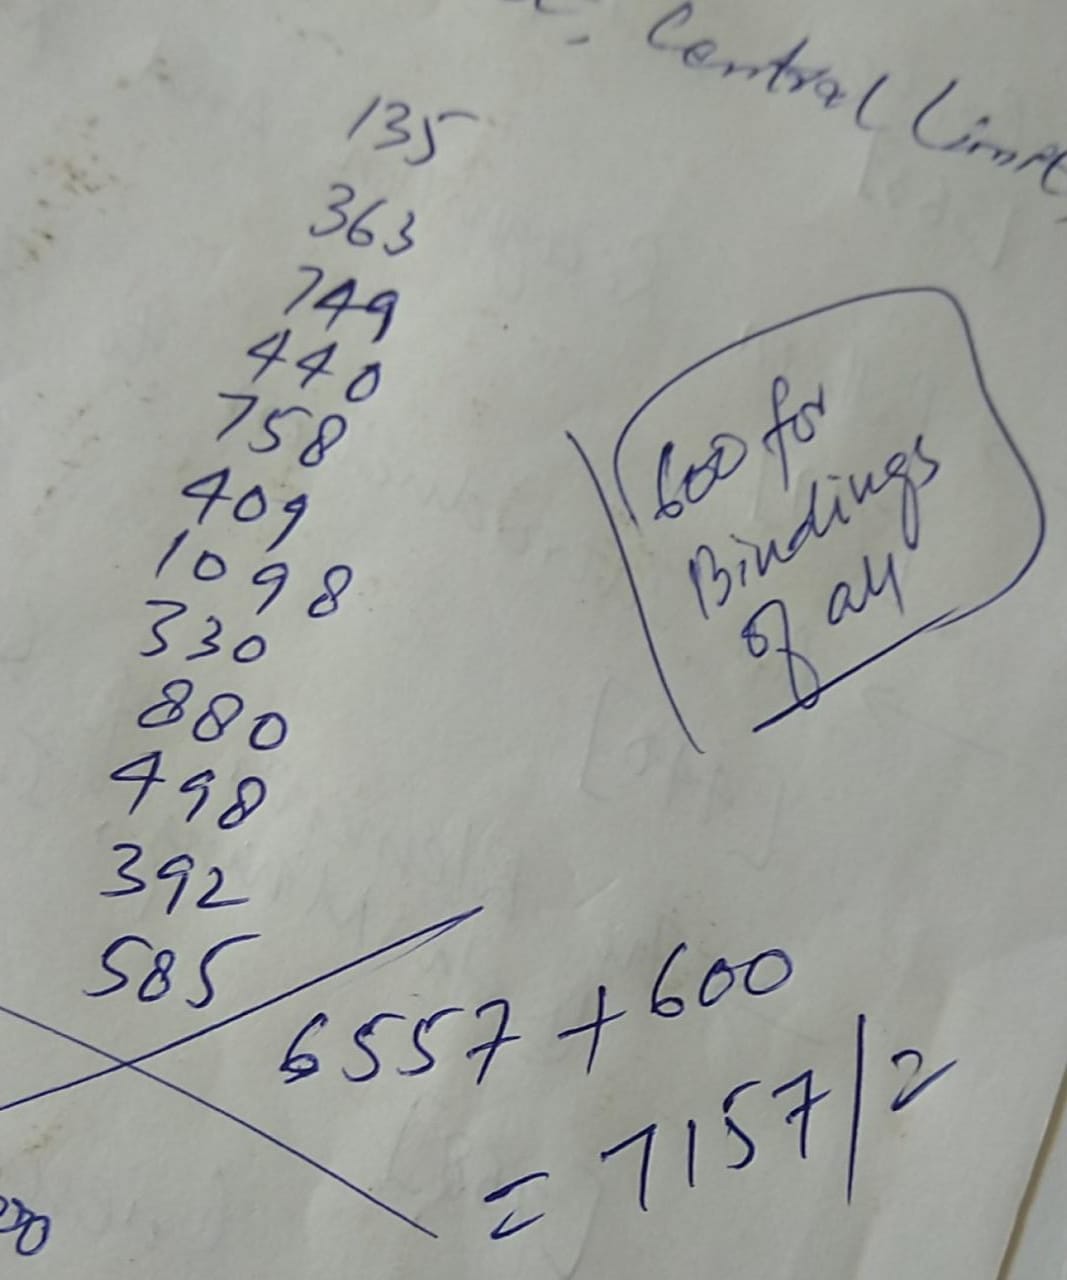 Central Limit
135
363
749
440
758
409
1098
330
880
498
392
585
600 for
Bindings
of all
6557 + 600
= 7157/2